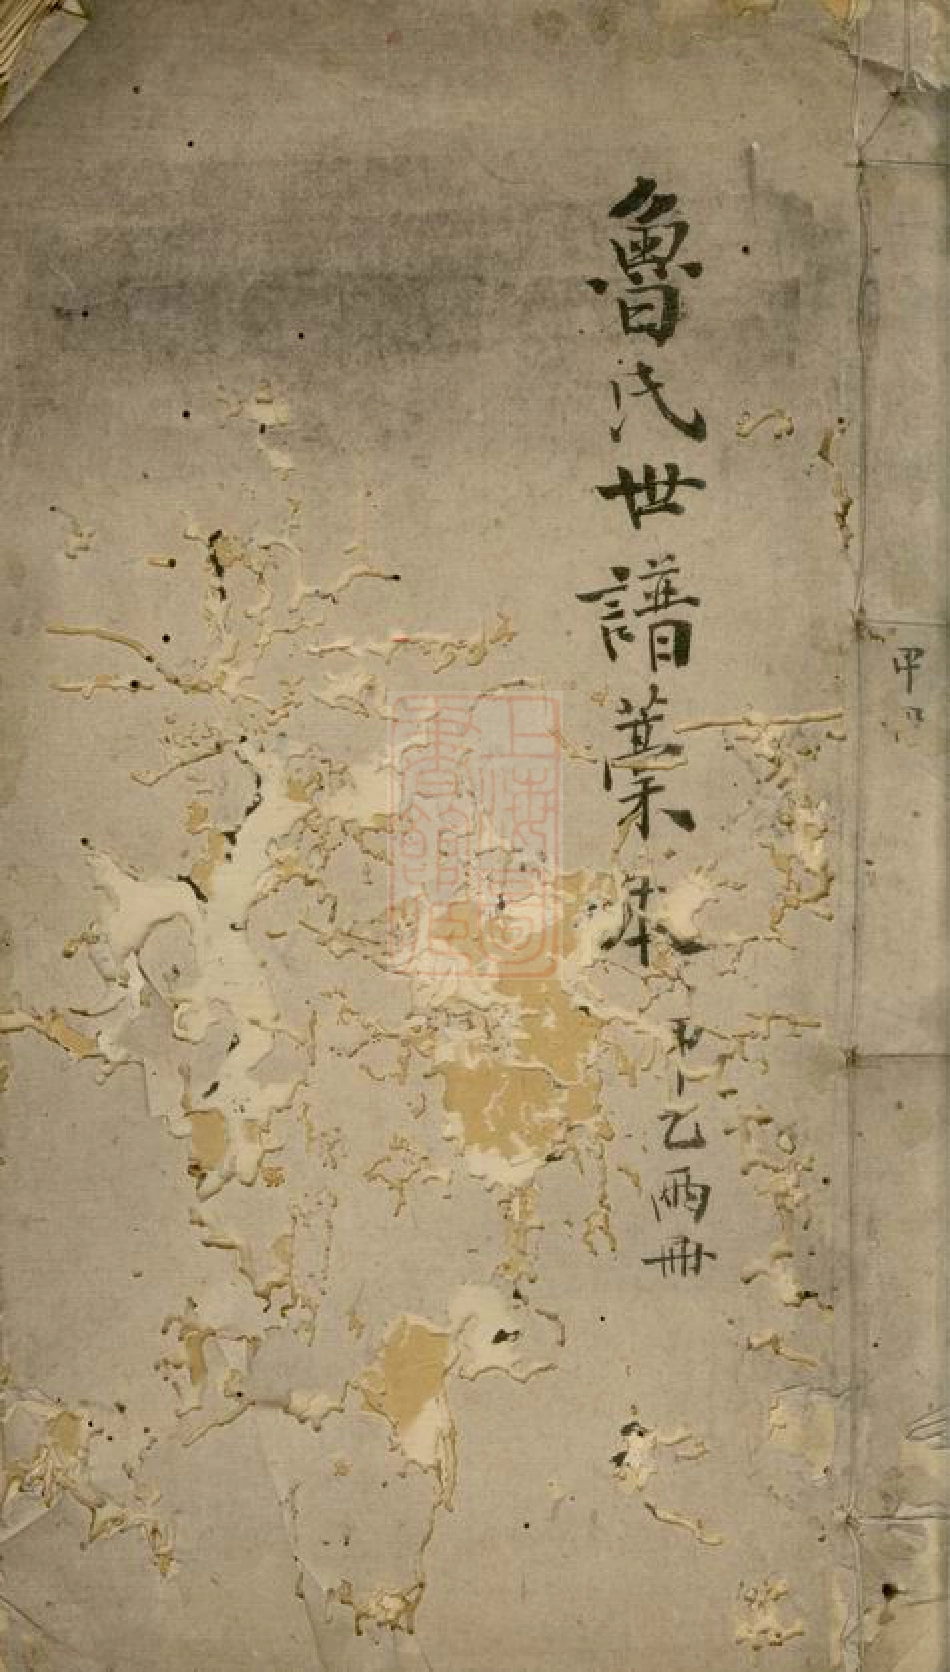 魯氏世譜藁本
甲乙兩冊
甲
上海圖書館藏